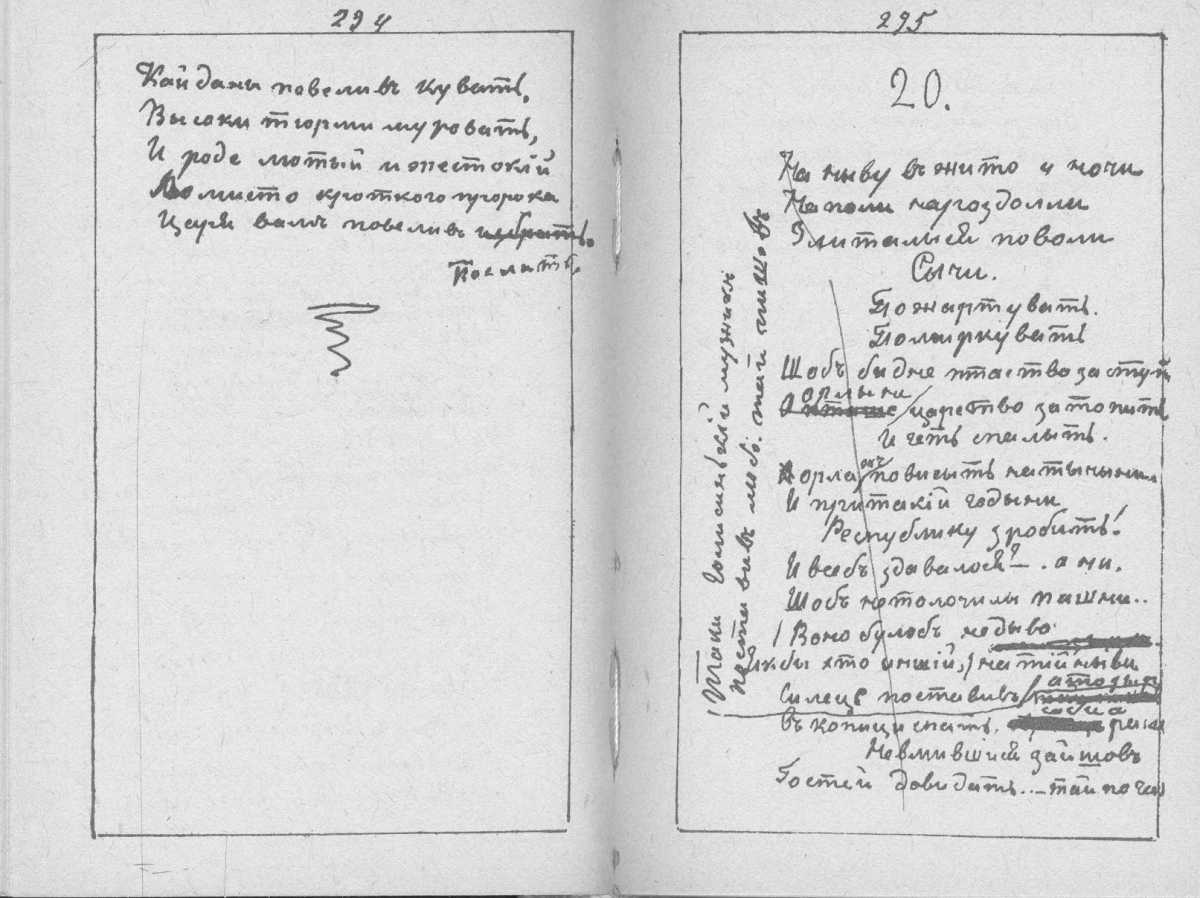 294
Кайданы повеливъ кувать,
Высоки тюрми муровать,
И роде лютый и жестокій
Вомисто кроткого пророка
Царя вамъ повеливъ избрать.
Послать.
295
20.
На ныву въ жито у ночи
На поли на роздолли
Злиталыся поволи
Сычи.
Пожартувать.
Помиркувать
Щобъ бидне птаство заступить
орлыне
царство затопить
И геть спалыть.
орла повисыть на тычыни
И при такій годыни
Республику зробить!
И всебъ здавалося? — . а ни.
Щобъ не толочилы пашни..
Воно булобъ не дыво
Якбы хто иншій, на тій ныви
Сильце поставивъ
въ копици спать.
Невмившися зайшовъ
Гостей довидать.. — тай по
Таки мужикъ
поставивъ тай пишовъ